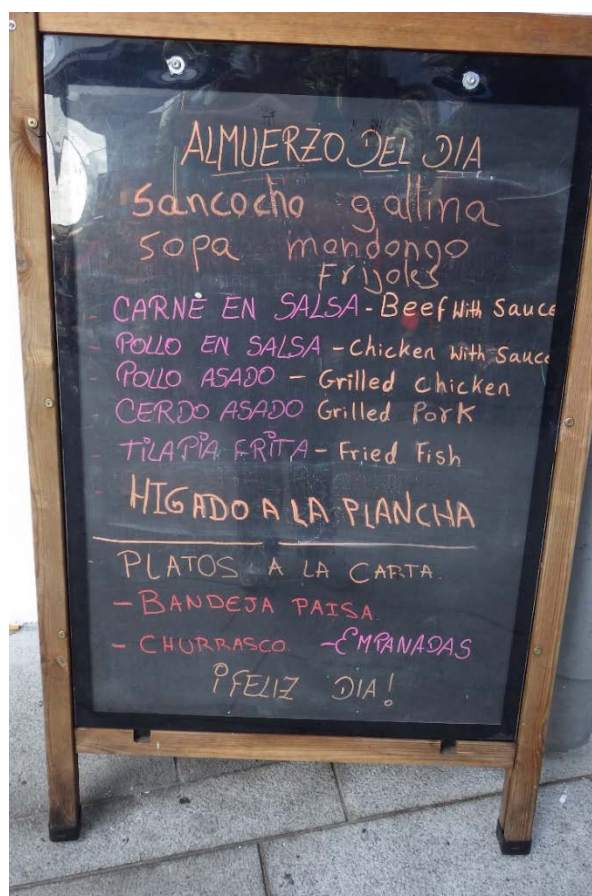 ALMUERZO DEL DIA
Sancocho gallina
Sopa mondongo
Frijoles
- CARNE EN SALSA - Beef With Sauce
- POLLO EN SALSA - Chicken With Sauce
- POLLO ASADO - Grilled Chicken
CERDO ASADO Grilled Pork
- TILAPIA FRITA - Fried Fish
- HIGADO A LA PLANCHA
PLATOS A LA CARTA.
- BANDEJA PAISA.
- CHURRASCO. - EMPANADAS
¡FELIZ DIA!